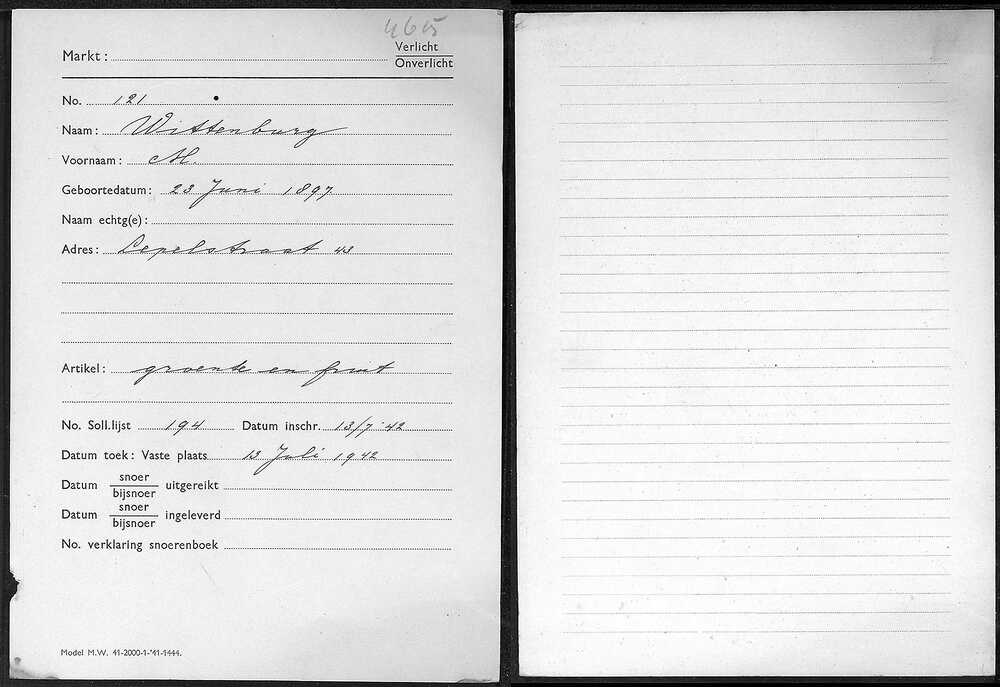 465
Markt :
Verlicht
Onverlicht
No. 121
Naam : Wittenburg
Voornaam : M.
Geboortedatum : 23 Juni 1897
Naam echtg(e) :
Adres : Lepelstraat 43
Artikel : groente en fruit
No. Soll.lijst 194 Datum inschr. 13/7 '42
Datum toek : Vaste plaats 13 Juli 1942
Datum snoer bijsnoer uitgereikt
Datum snoer bijsnoer ingeleverd
No. verklaring snoerenboek
Model M.W. 41-2000-1-'41-1444.